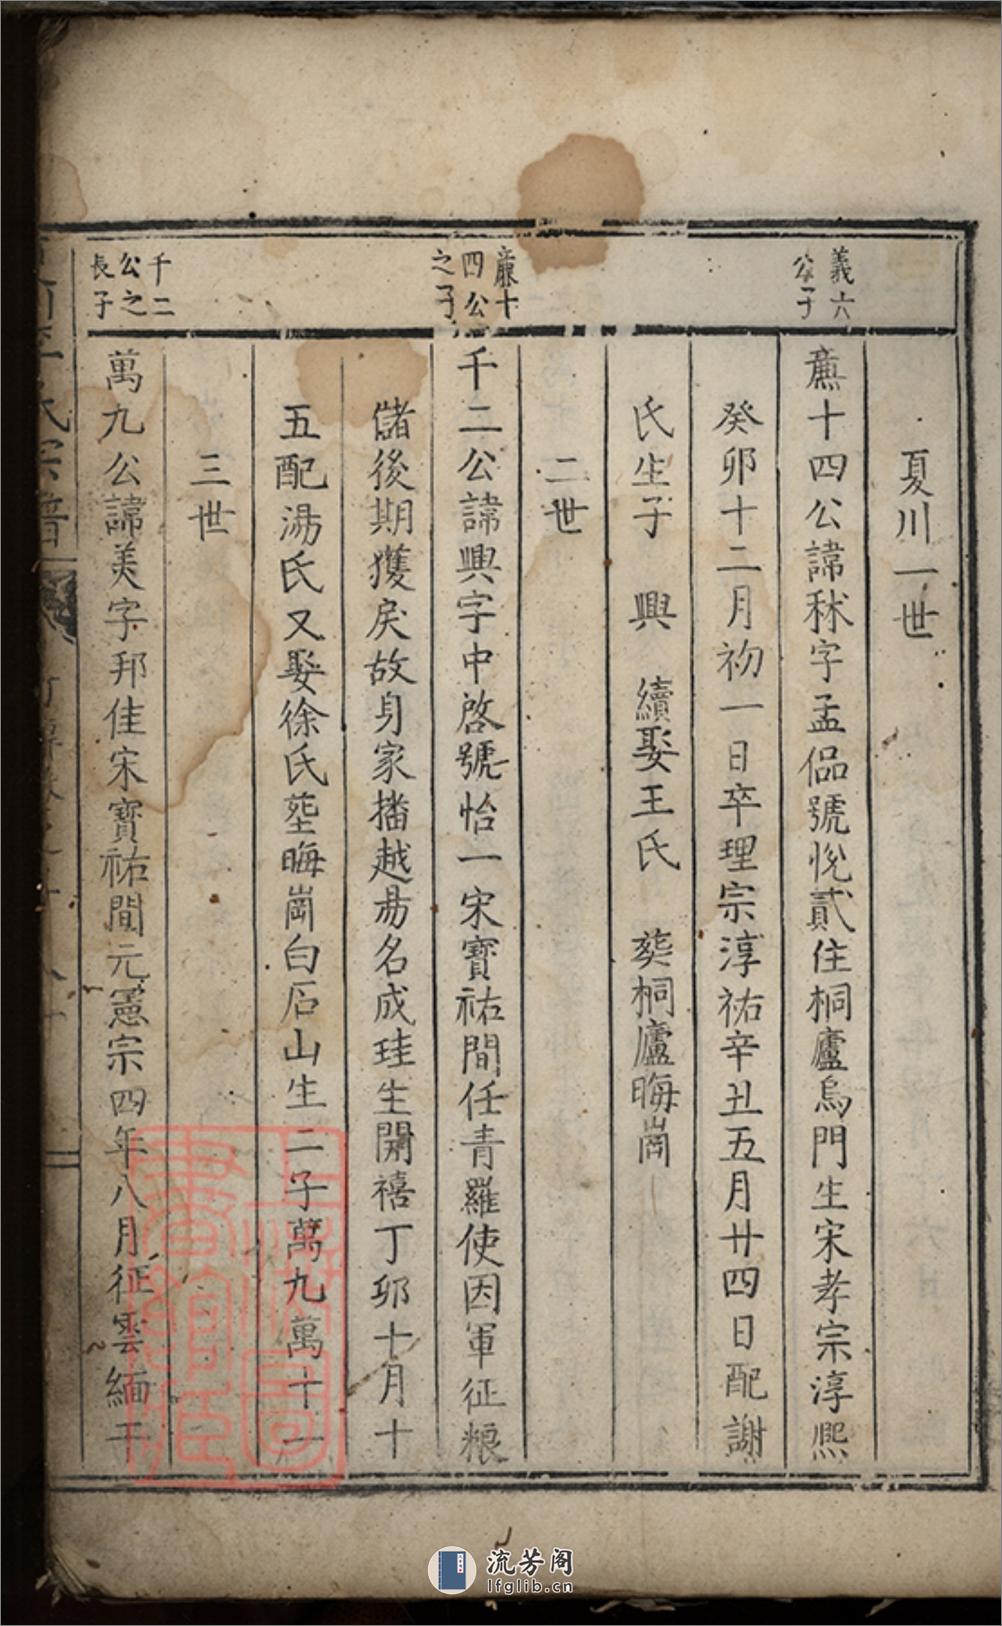 義六
公子
夏川一世
廉十四公諱秝字孟侣號悅貳住桐廬烏門生宋孝宗淳熙
癸卯十二月初一日卒理宗淳祐辛丑五月廿四日配謝
氏生子　興　續娶王氏　葬桐廬晦崗
二世
廉十
四公
之子
千二公諱興字中啓號怡一宋寳祐間任青羅使因軍征粮
儲後期獲戾故身家播越易名成珪生開禧丁卯十月十
五配湯氏又娶徐氏塟晦崗白石山生二子萬九萬十一
三世
千二
公之
長子
萬九公諱美字邦佳宋寳祐間元憲宗四年八月征雲緬干
氏宗譜
上海圖書館藏
流芳阁
lfglib.cn